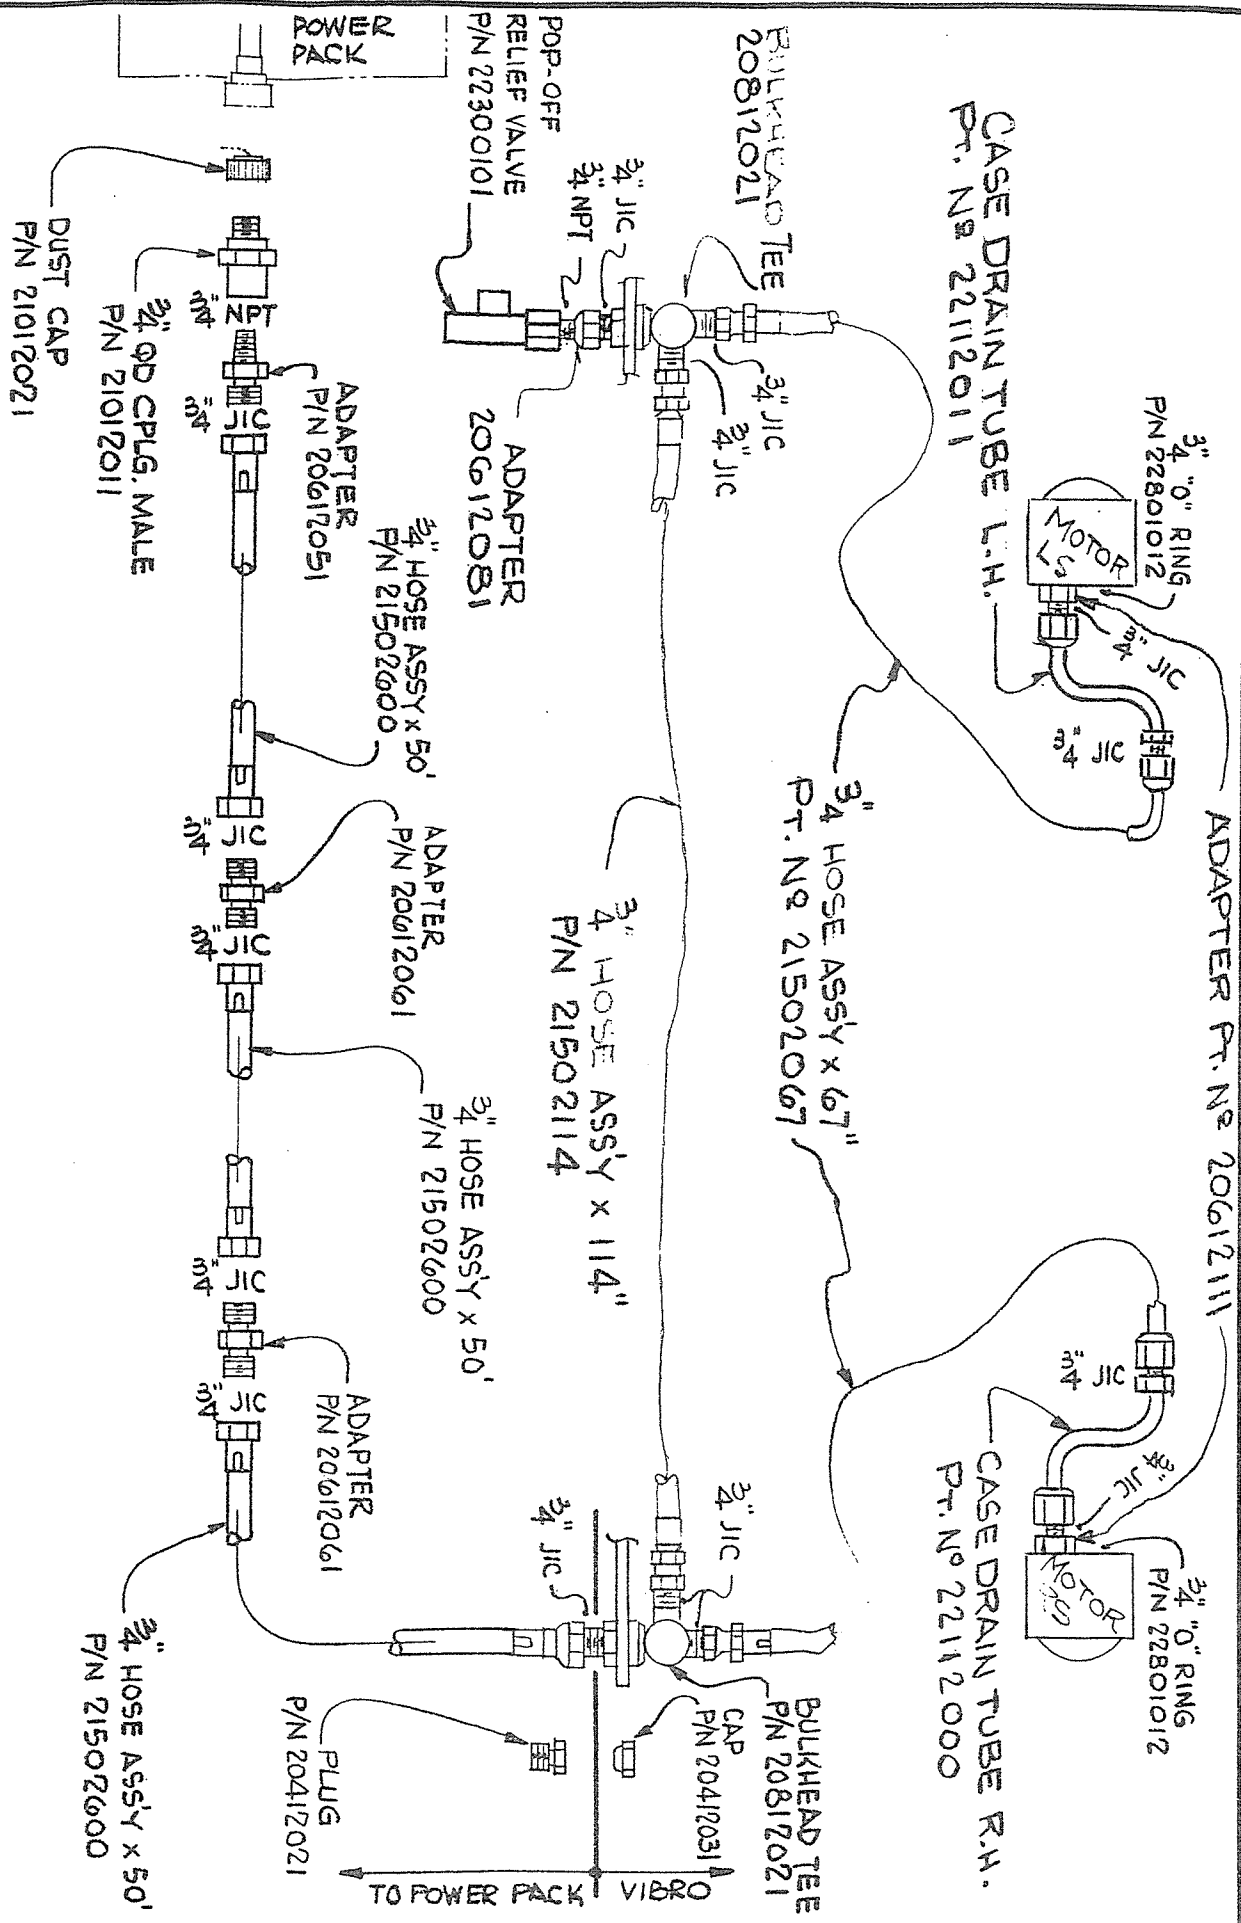 ADAPTER PT. Nº 20612111
3/4" "O" RING
P/N 22801012
MOTOR
LS
3/4" JIC
3/4" JIC
CASE DRAIN TUBE L.H.
PT. Nº 22112011
3/4" "O" RING
P/N 22801012
MOTOR
3/4" JIC
3/4" JIC
CASE DRAIN TUBE R.H.
PT. Nº 22112000
3/4 HOSE ASS'Y x 67"
PT. Nº 21502067
BULKHEAD TEE
20812021
3/4" JIC
3/4" JIC
3/4" JIC
3/4" NPT
POP-OFF
RELIEF VALVE
P/N 22300101
ADAPTER
20612081
3/4" HOSE ASS'Y x 114"
P/N 21502114
3/4" JIC
3/4" JIC
BULKHEAD TEE
P/N 20812021
CAP
P/N 20412031
PLUG
P/N 20412021
TO POWER PACK
VIBRO
POWER
PACK
DUST CAP
P/N 21012021
3/4" QD CPLG. MALE
P/N 21012011
3/4" NPT
ADAPTER
P/N 20612051
3/4" JIC
3/4" HOSE ASS'Y x 50'
P/N 21502600
3/4" JIC
ADAPTER
P/N 20612061
3/4" JIC
3/4" HOSE ASS'Y x 50'
P/N 21502600
3/4" JIC
ADAPTER
P/N 20612061
3/4" JIC
3/4" HOSE ASS'Y x 50'
P/N 21502600